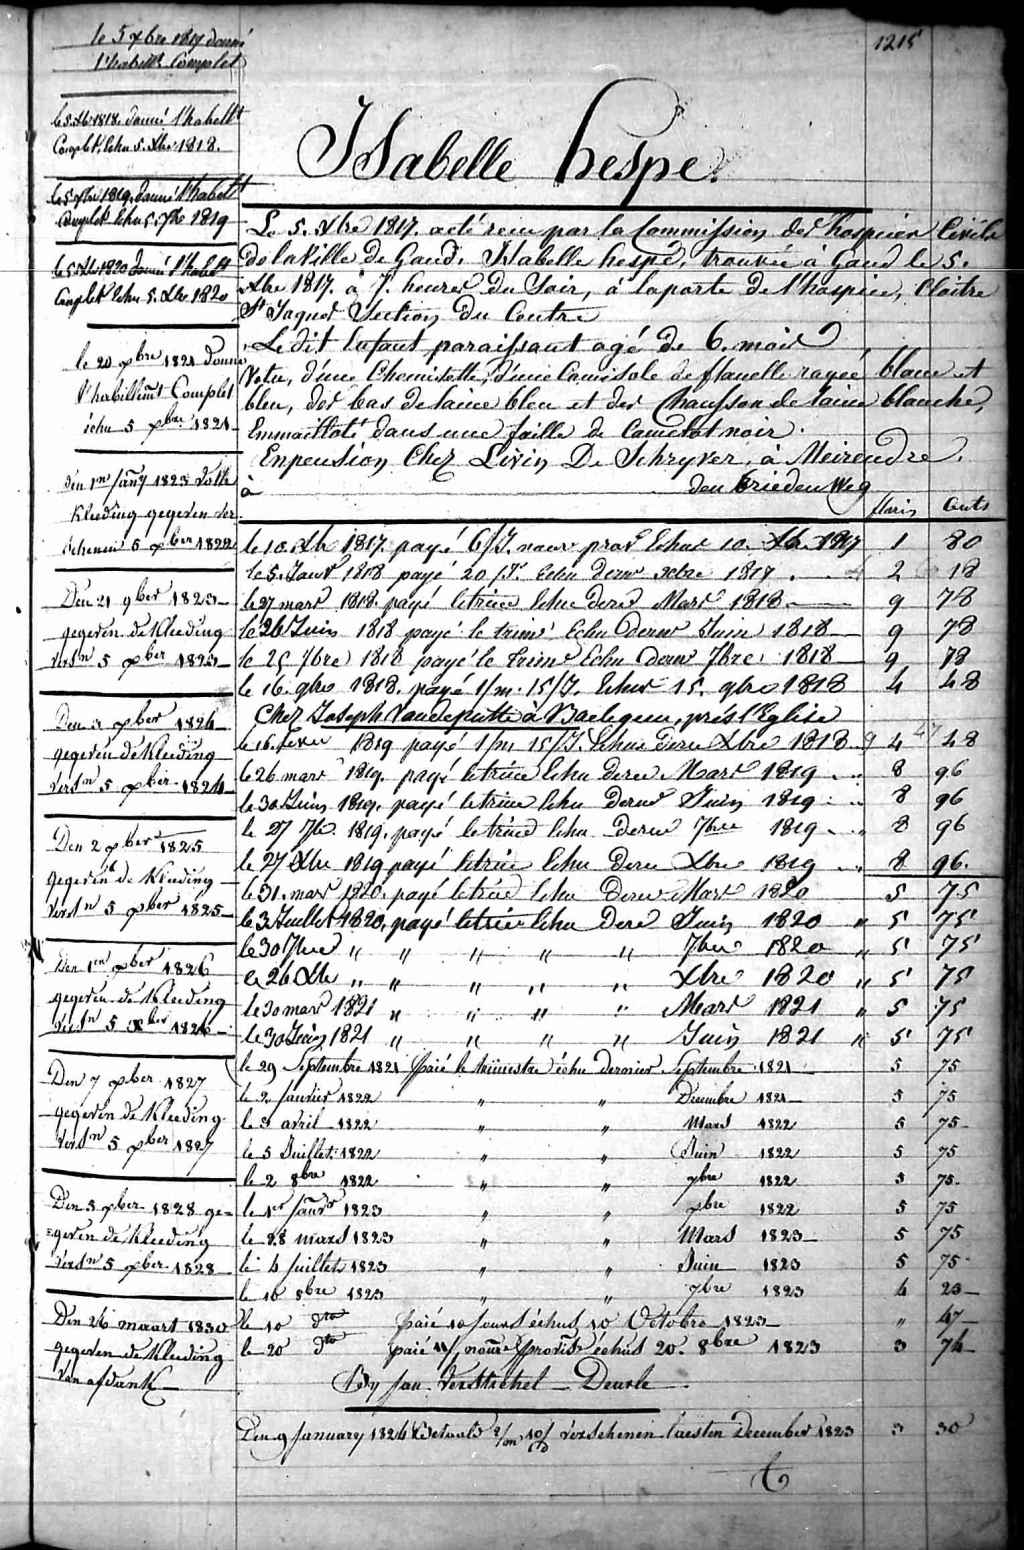 1215
le 5 xbre 1817 donné
l'habillt Complet
le 5 Xb 1818. donné l'habellt
Complet, Echu 5. Xbre 1818.
le 5 xbre 1819. donné l'habellt
Complet Echu 5. Xbre 1819
le 5 Xb 1820 donné l'habellt
Complet Echu 5. Xbre 1820
le 20 xbre 1821 donné
l'habillemt Complet
échu 5 xbre 1821
den 1en Jany 1823 volle
Kleeding gegeven ver
schenen 5 xber 1822
Den 21 9ber 1823
gegeven de Kleeding
versn 5 xber 1823
Den 3 xber 1824
gegeven de Kleeding
versn 5 xber 1824
Den 2 xber 1825
gegeven de Kleeding
versn 5 xber 1825
Den 1en xber 1826
gegeven de Kleeding
versn 5 xber 1826
Den 7 xber 1827
gegeven de Kleeding
versn 5 xber 1827
Den 5 xber 1828 ge=
=geven de Kleeding
versn 5 xber 1828
Den 26 maart 1830
gegeven de Kleeding
van afdank
Isabelle hespe.
Le 5. Xbre 1817. acté reçu par la Commission des hospices Civils
De la Ville de Gand. Isabelle hespe, trouvée à Gand le 5.
Xbre 1817. à 7. heures du Soir, à la porte de l'hospice, Cloitre
St Jaques Section du Centre
Le dit Enfant paraissant agé de 6. mois
Vetu, d'une Chemisette, d'une Camisole de flanelle rayée blanc et
bleu, des bas de laine bleu et des Chausson de laine blanche,
Emmailloté dans une faille de Camelot noir.
En pension Chez Livin De Schryver, à Meirendre.
à den Brieden Weg
florin Cents
le 10. Xb 1817. payé 6/J. nour provs Echus 10. Xb. 1817 1 80
le 5. Janvr 1818 payé 20 /Js Echu dernr Xbre 1817 2 18
le 27 mars 1818. payé le trim Echu dernr Mars 1818 9 78
le 26 Juin 1818 payé le trime Echu dernr Juin 1818 9 78
le 25 7bre 1818 payé le trime Echu dernr 7bre 1818 9 78
le 16. 9bre 1818. payé 1/m. 15/J. Echus 15. 9bre 1818 4 48
Chez Joseph Vandeputte à Baelegem, près l'Eglise
le 16 fevr 1819 payé 1/m 15/J. Echus dernr Xbre 1818 4 48
le 26 mars 1819. payé le trim Echu dernr Mars 1819 8 96
le 30 Juin 1819. payé le trim Echu dernr Juin 1819 8 96
le 27 7b 1819. payé le trim Echu dernr 7bre 1819 8 96
le 27 Xbre 1819 payé le trim Echu dernr Xbre 1819 8 96.
le 31. mars 1820. payé le trim Echu dernr Mars 1820 5 75
le 3 Juillet 1820. payé le trim Echu dernr Juin 1820 " 5 75
le 30 7bre " " " " " 7bre 1820 " 5 75
le 26 Xbre " " " " " Xbre 1820 " 5 75
le 30 mars 1821 " " " " Mars 1821 " 5 75
le 30 Juin 1821 " " " " Juin 1821 " 5 75
le 29 Septembre 1821 payé le trimestre échu dernier Septembre 1821 5 75
le 2 janvier 1822 " " Decembre 1821 5 75
le 3 avril 1822 " " Mars 1822 5 75
le 5 Juillet 1822 " " Juin 1822 5 75
le 2 8bre 1822 " " 7bre 1822 5 75
le 1er Janvr 1823 " " xbre 1822 5 75
le 28 mars 1823 " " Mars 1823 5 75
le 4 juillet 1823 " " Juin 1823 5 75
le 10 8bre 1823 " " 7bre 1823 4 23
le 10 dto paié 10 jours échus 10 Octobre 1823 " 47
le 20 dto paié nourr provis échus 20. 8bre 1823 3 74
By Jan Verstichel Deurle
Den 9 January 1824 Betaald 2/m 10/d verschenen laesten December 1823 3 30